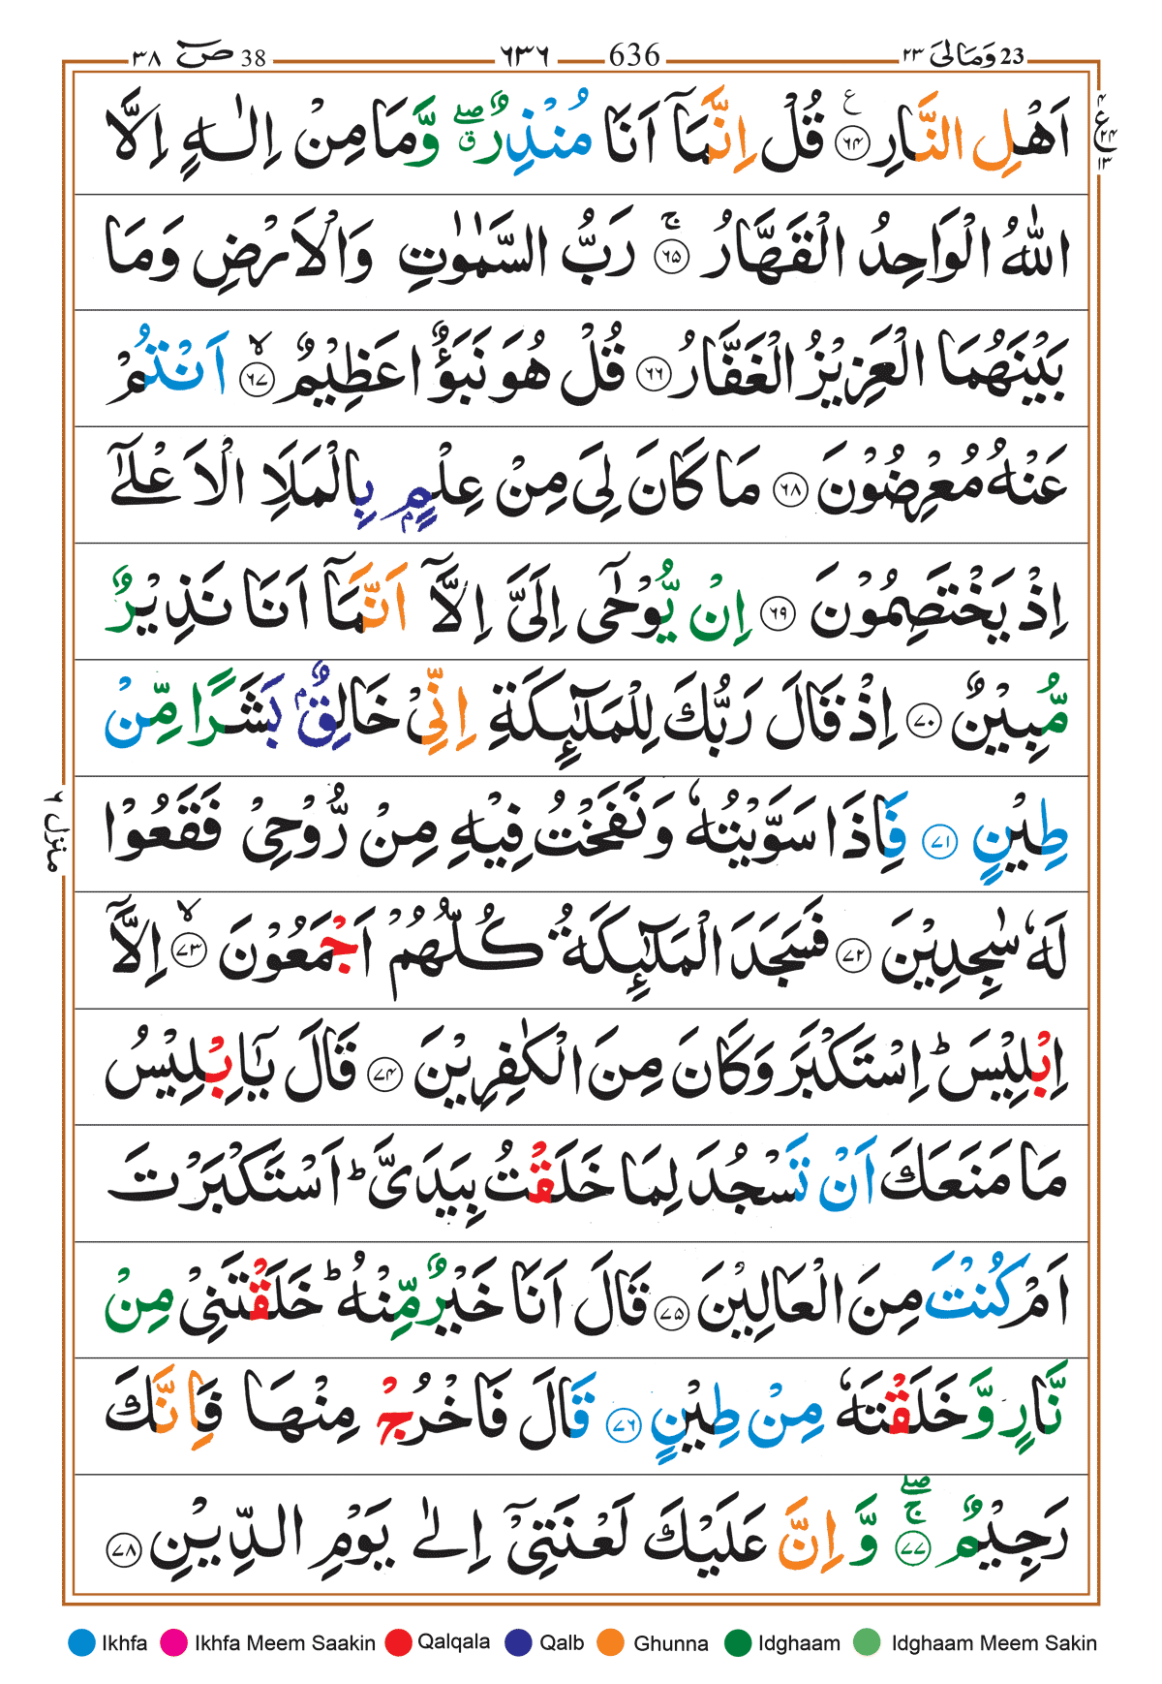 ٣٨ صٓ 38 ٦٣٦ 636 ٢٣ وَمَالِیَ 23
اَهْلِ النَّارِ ﴿٦٤﴾ ع قُلْ اِنَّمَاۤ اَنَا مُنْذِرٌ ۖۗ وَّمَا مِنْ اِلٰهٍ اِلَّا
اللّٰهُ الْوَاحِدُ الْقَهَّارُ ﴿٦٥﴾ۚ رَبُّ السَّمٰوٰتِ وَالْاَرْضِ وَمَا
بَيْنَهُمَا الْعَزِيْزُ الْغَفَّارُ ﴿٦٦﴾ قُلْ هُوَ نَبَؤٌا عَظِيْمٌ ﴿٦٧﴾ۙ اَنْتُمْ
عَنْهُ مُعْرِضُوْنَ ﴿٦٨﴾ مَا كَانَ لِیَ مِنْ عِلْمٍۭ بِالْمَلَاِ الْاَعْلٰٓى
اِذْ يَخْتَصِمُوْنَ ﴿٦٩﴾ اِنْ يُّوْحٰۤى اِلَیَّ اِلَّاۤ اَنَّمَاۤ اَنَا نَذِيْرٌ
مُّبِيْنٌ ﴿٧٠﴾ اِذْ قَالَ رَبُّكَ لِلْمَلٰٓئِكَةِ اِنِّیْ خَالِقٌۢ بَشَرًا مِّنْ
طِيْنٍ ﴿٧١﴾ فَاِذَا سَوَّيْتُهٗ وَنَفَخْتُ فِيْهِ مِنْ رُّوْحِیْ فَقَعُوْا
لَهٗ سٰجِدِيْنَ ﴿٧٢﴾ فَسَجَدَ الْمَلٰٓئِكَةُ كُلُّهُمْ اَجْمَعُوْنَ ﴿٧٣﴾ۙ اِلَّاۤ
اِبْلِيْسَ ؕ اِسْتَكْبَرَ وَكَانَ مِنَ الْكٰفِرِيْنَ ﴿٧٤﴾ قَالَ يٰۤاِبْلِيْسُ
مَا مَنَعَكَ اَنْ تَسْجُدَ لِمَا خَلَقْتُ بِيَدَیَّ ؕ اَسْتَكْبَرْتَ
اَمْ كُنْتَ مِنَ الْعَالِيْنَ ﴿٧٥﴾ قَالَ اَنَا خَيْرٌ مِّنْهُ ؕ خَلَقْتَنِیْ مِنْ
نَّارٍ وَّخَلَقْتَهٗ مِنْ طِيْنٍ ﴿٧٦﴾ قَالَ فَاخْرُجْ مِنْهَا فَاِنَّكَ
رَجِيْمٌ ﴿٧٧﴾ۚۖ وَّاِنَّ عَلَيْكَ لَعْنَتِیْۤ اِلٰى يَوْمِ الدِّيْنِ ﴿٧٨﴾
٤ ع ٢٤ ١٣
منزل ٦
Ikhfa Ikhfa Meem Saakin Qalqala Qalb Ghunna Idghaam Idghaam Meem Sakin